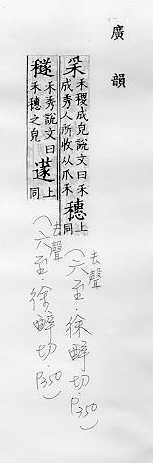 廣韻
采 禾稷成皃說文曰禾
成秀人所收从爪禾 穗 上同
去聲
(六至·徐醉切·P350)
穟 禾秀說文曰
禾穗之皃 䔹 上同
去聲
(六至·徐醉切·P350)